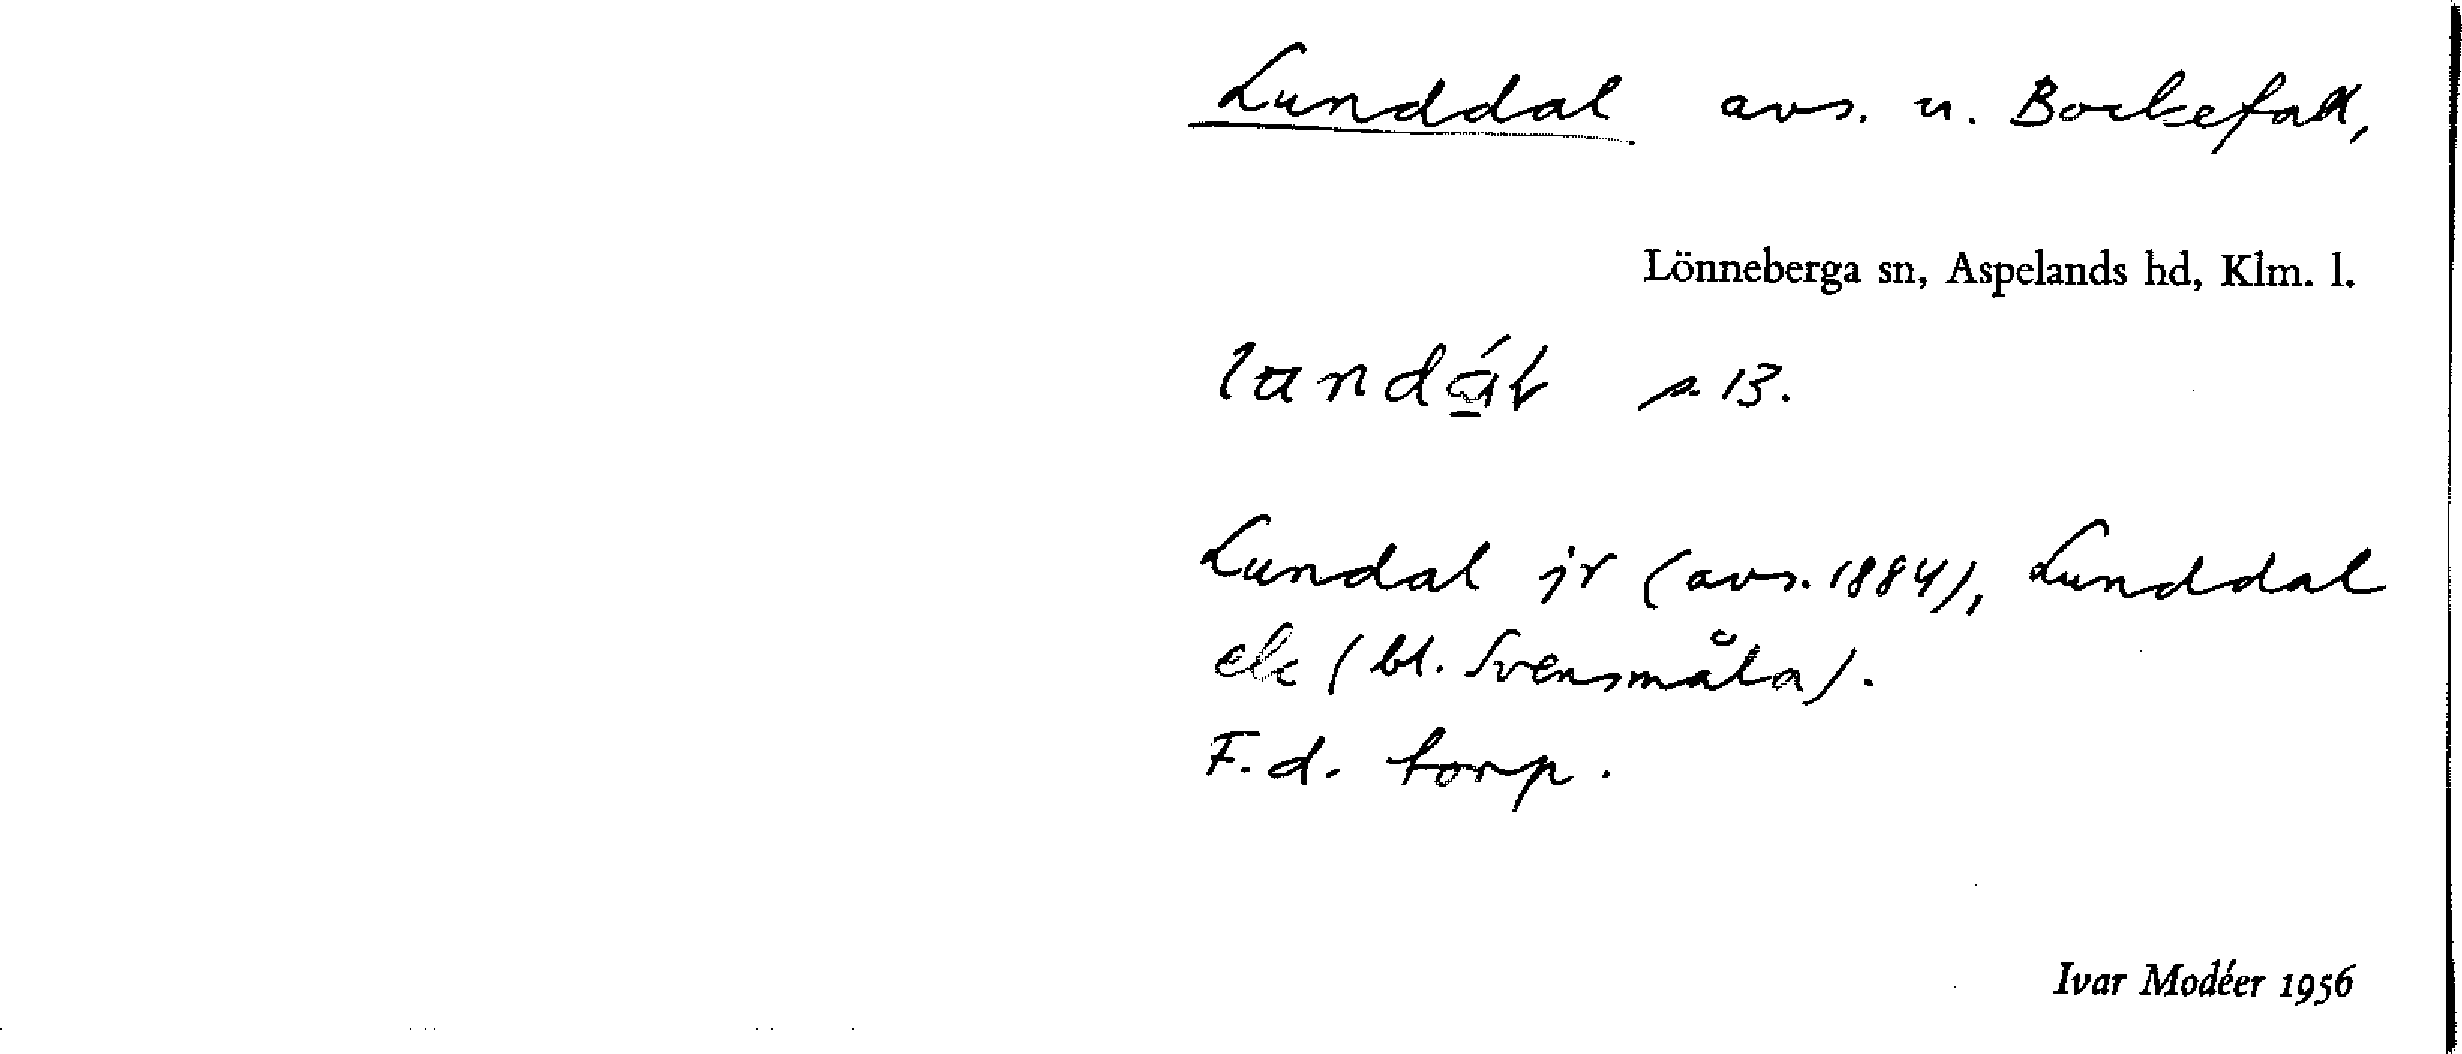 Lunddal avs. u. Bockefall,
Lönneberga sn, Aspelands hd, Klm. l.
s. 13.
Lundal jr (avs. 1884), Lunddal
ek (bl. Svensmåla).
F.d. torp.
Ivar Modéer 1956